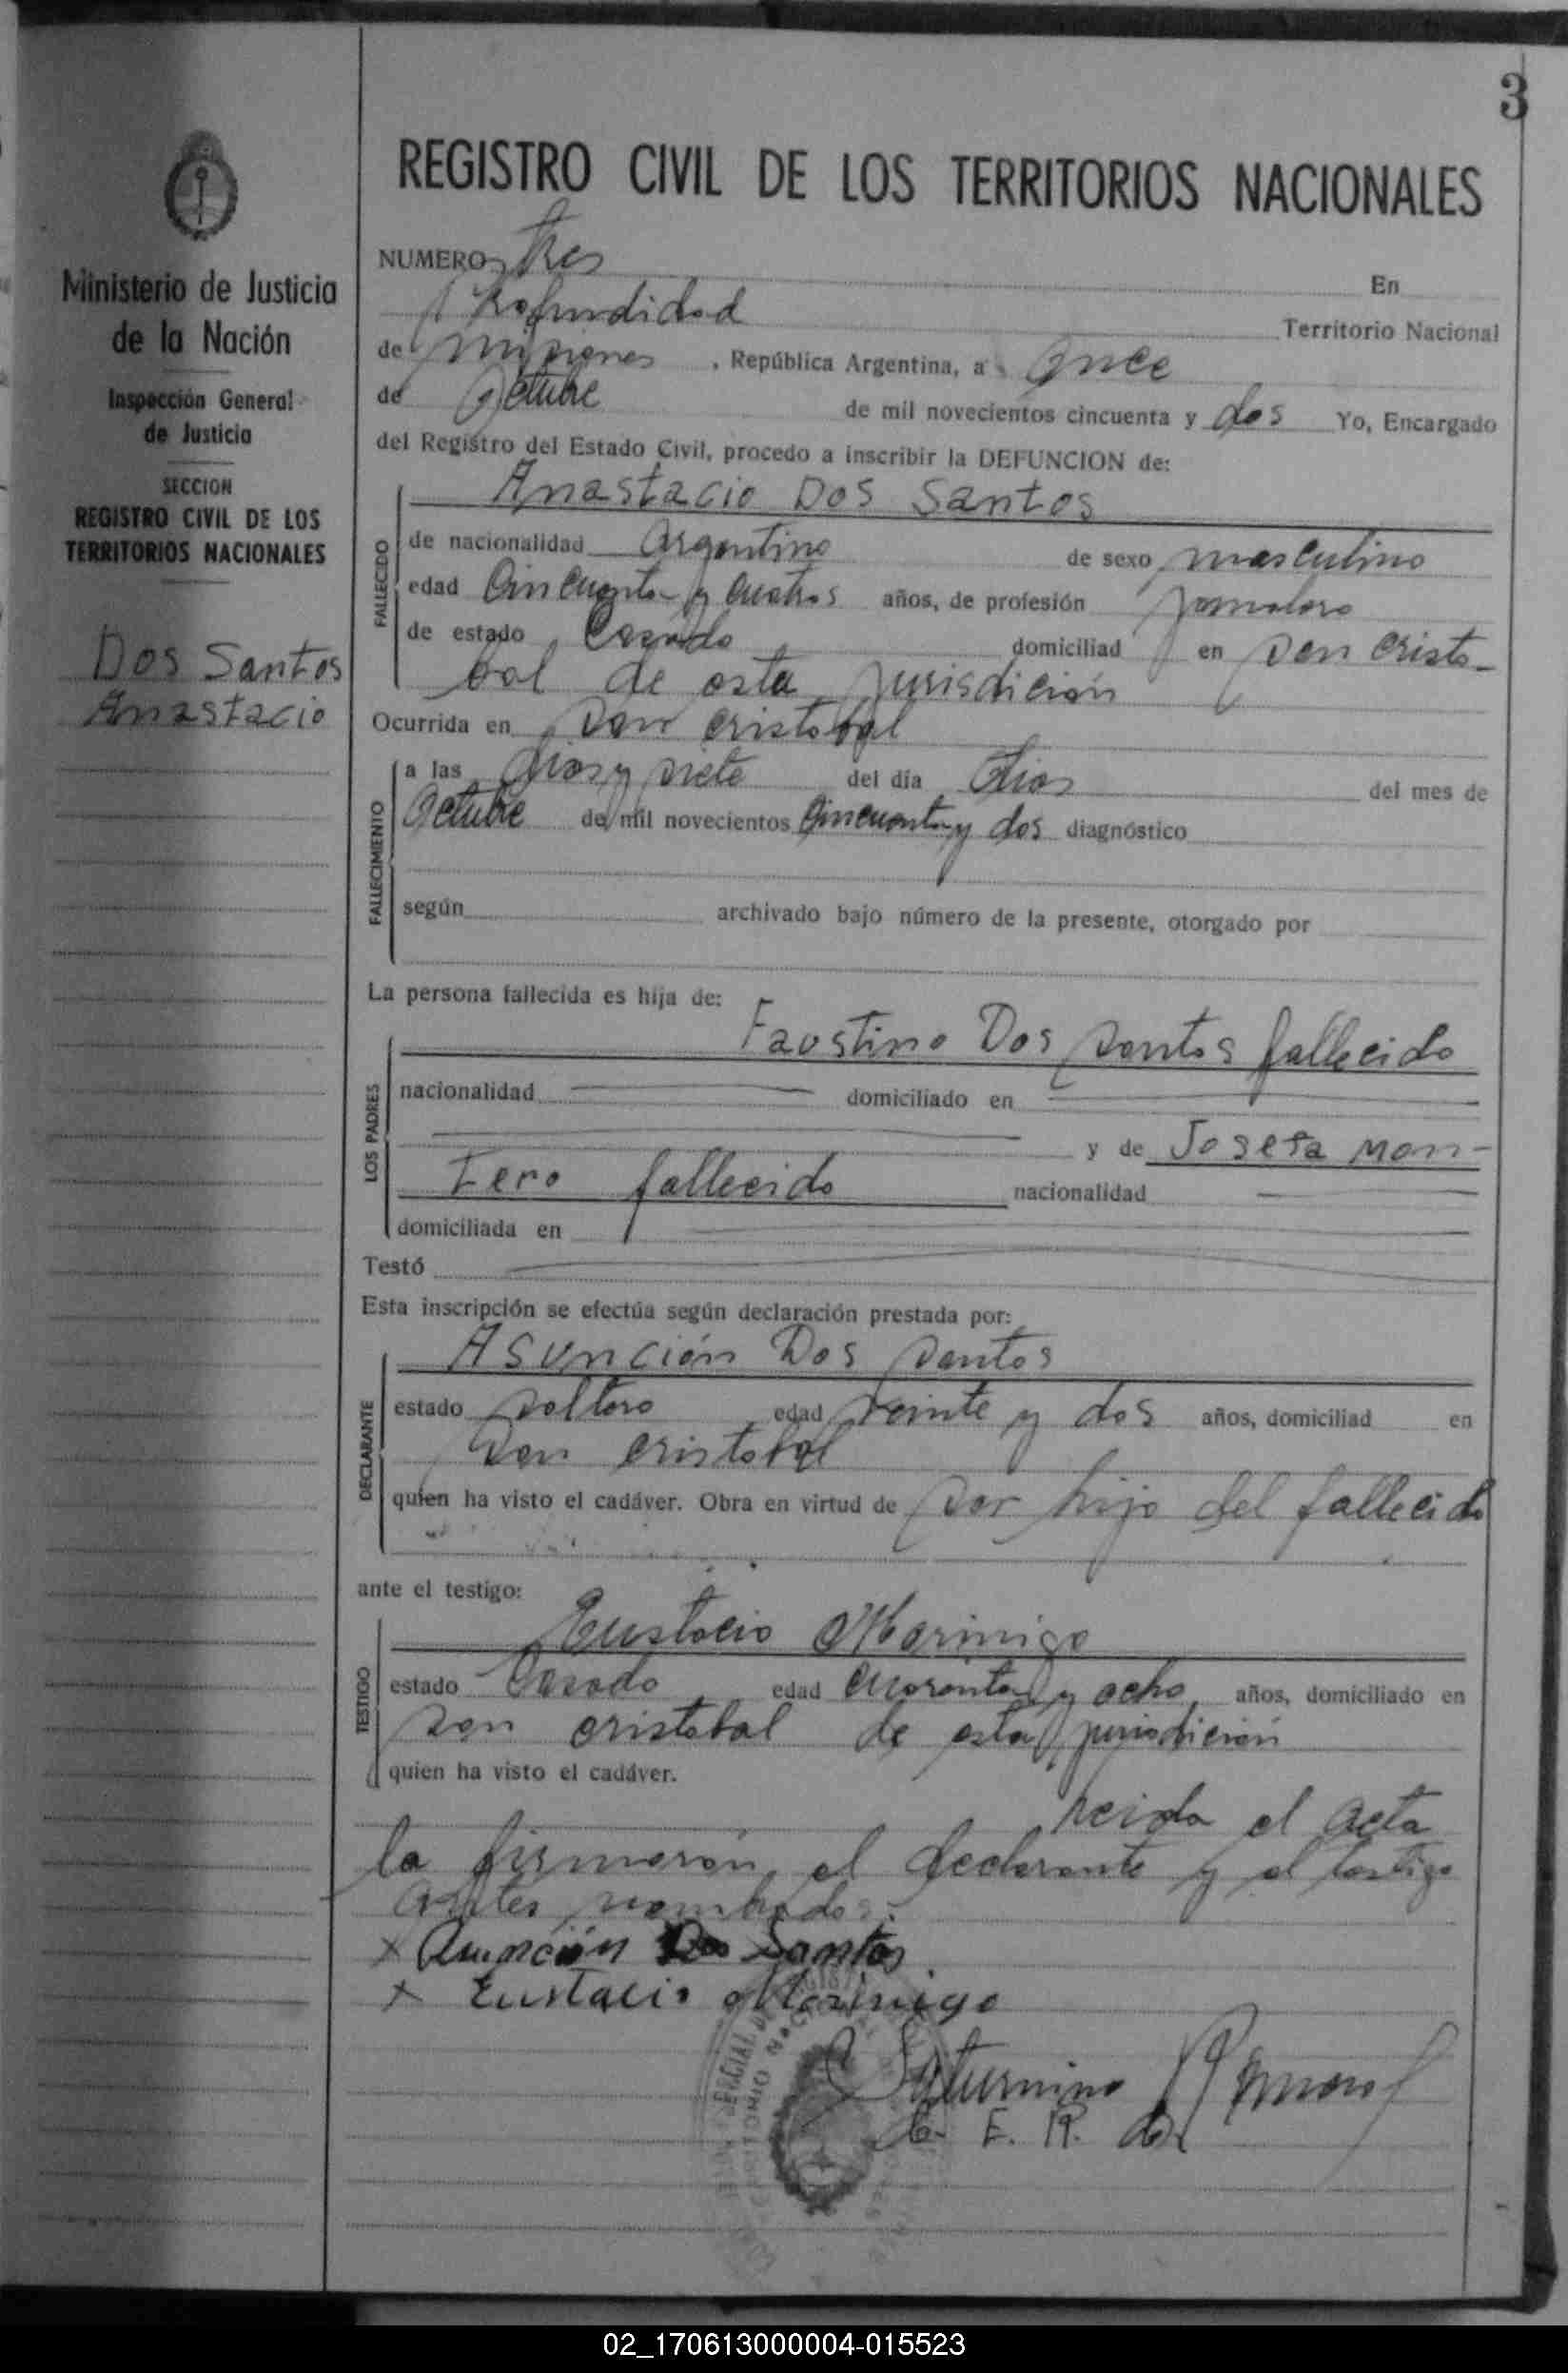 3
REGISTRO CIVIL DE LOS TERRITORIOS NACIONALES
Ministerio de Justicia
de la Nación
Inspección General
de Justicia
SECCION
REGISTRO CIVIL DE LOS
TERRITORIOS NACIONALES
Dos Santos
Anastacio
NUMERO tres En
Profundidad Territorio Nacional
de Misiones , República Argentina, a Once
de Octubre de mil novecientos cincuenta y dos Yo, Encargado
del Registro del Estado Civil, procedo a inscribir la DEFUNCION de:
Anastacio Dos Santos
FALLECIDO
de nacionalidad Argentino de sexo masculino
edad Cincuenta y cuatros años, de profesión Jornalero
de estado Casado domiciliad en San Cristo-
bal de esta jurisdicion
Ocurrida en San Cristobal
FALLECIMIENTO
a las dies y siete del día dies del mes de
Octubre de mil novecientos Cincuenta y dos diagnóstico
según archivado bajo número de la presente, otorgado por
La persona fallecida es hija de:
LOS PADRES
Faustino Dos Santos fallecido
nacionalidad domiciliado en
y de Josefa Mon-
tero fallecido nacionalidad
domiciliada en
Testó
Esta inscripción se efectúa según declaración prestada por:
DECLARANTE
Asunción Dos Santos
estado soltero edad veinte y dos años, domiciliad en
San Cristobal
quien ha visto el cadáver. Obra en virtud de ser hijo del fallecido
ante el testigo:
TESTIGO
Eustacio Morinigo
estado Casado edad cuarenta y ocho años, domiciliado en
San Cristobal de esta jurisdicion
quien ha visto el cadáver.
Leida el acta
la firmaron, el declarante y el testigo
antes nombrados.
x Asunción Dos Santos
x Eustacio Morinigo
Saturnino
E. R.
02_170613000004-015523